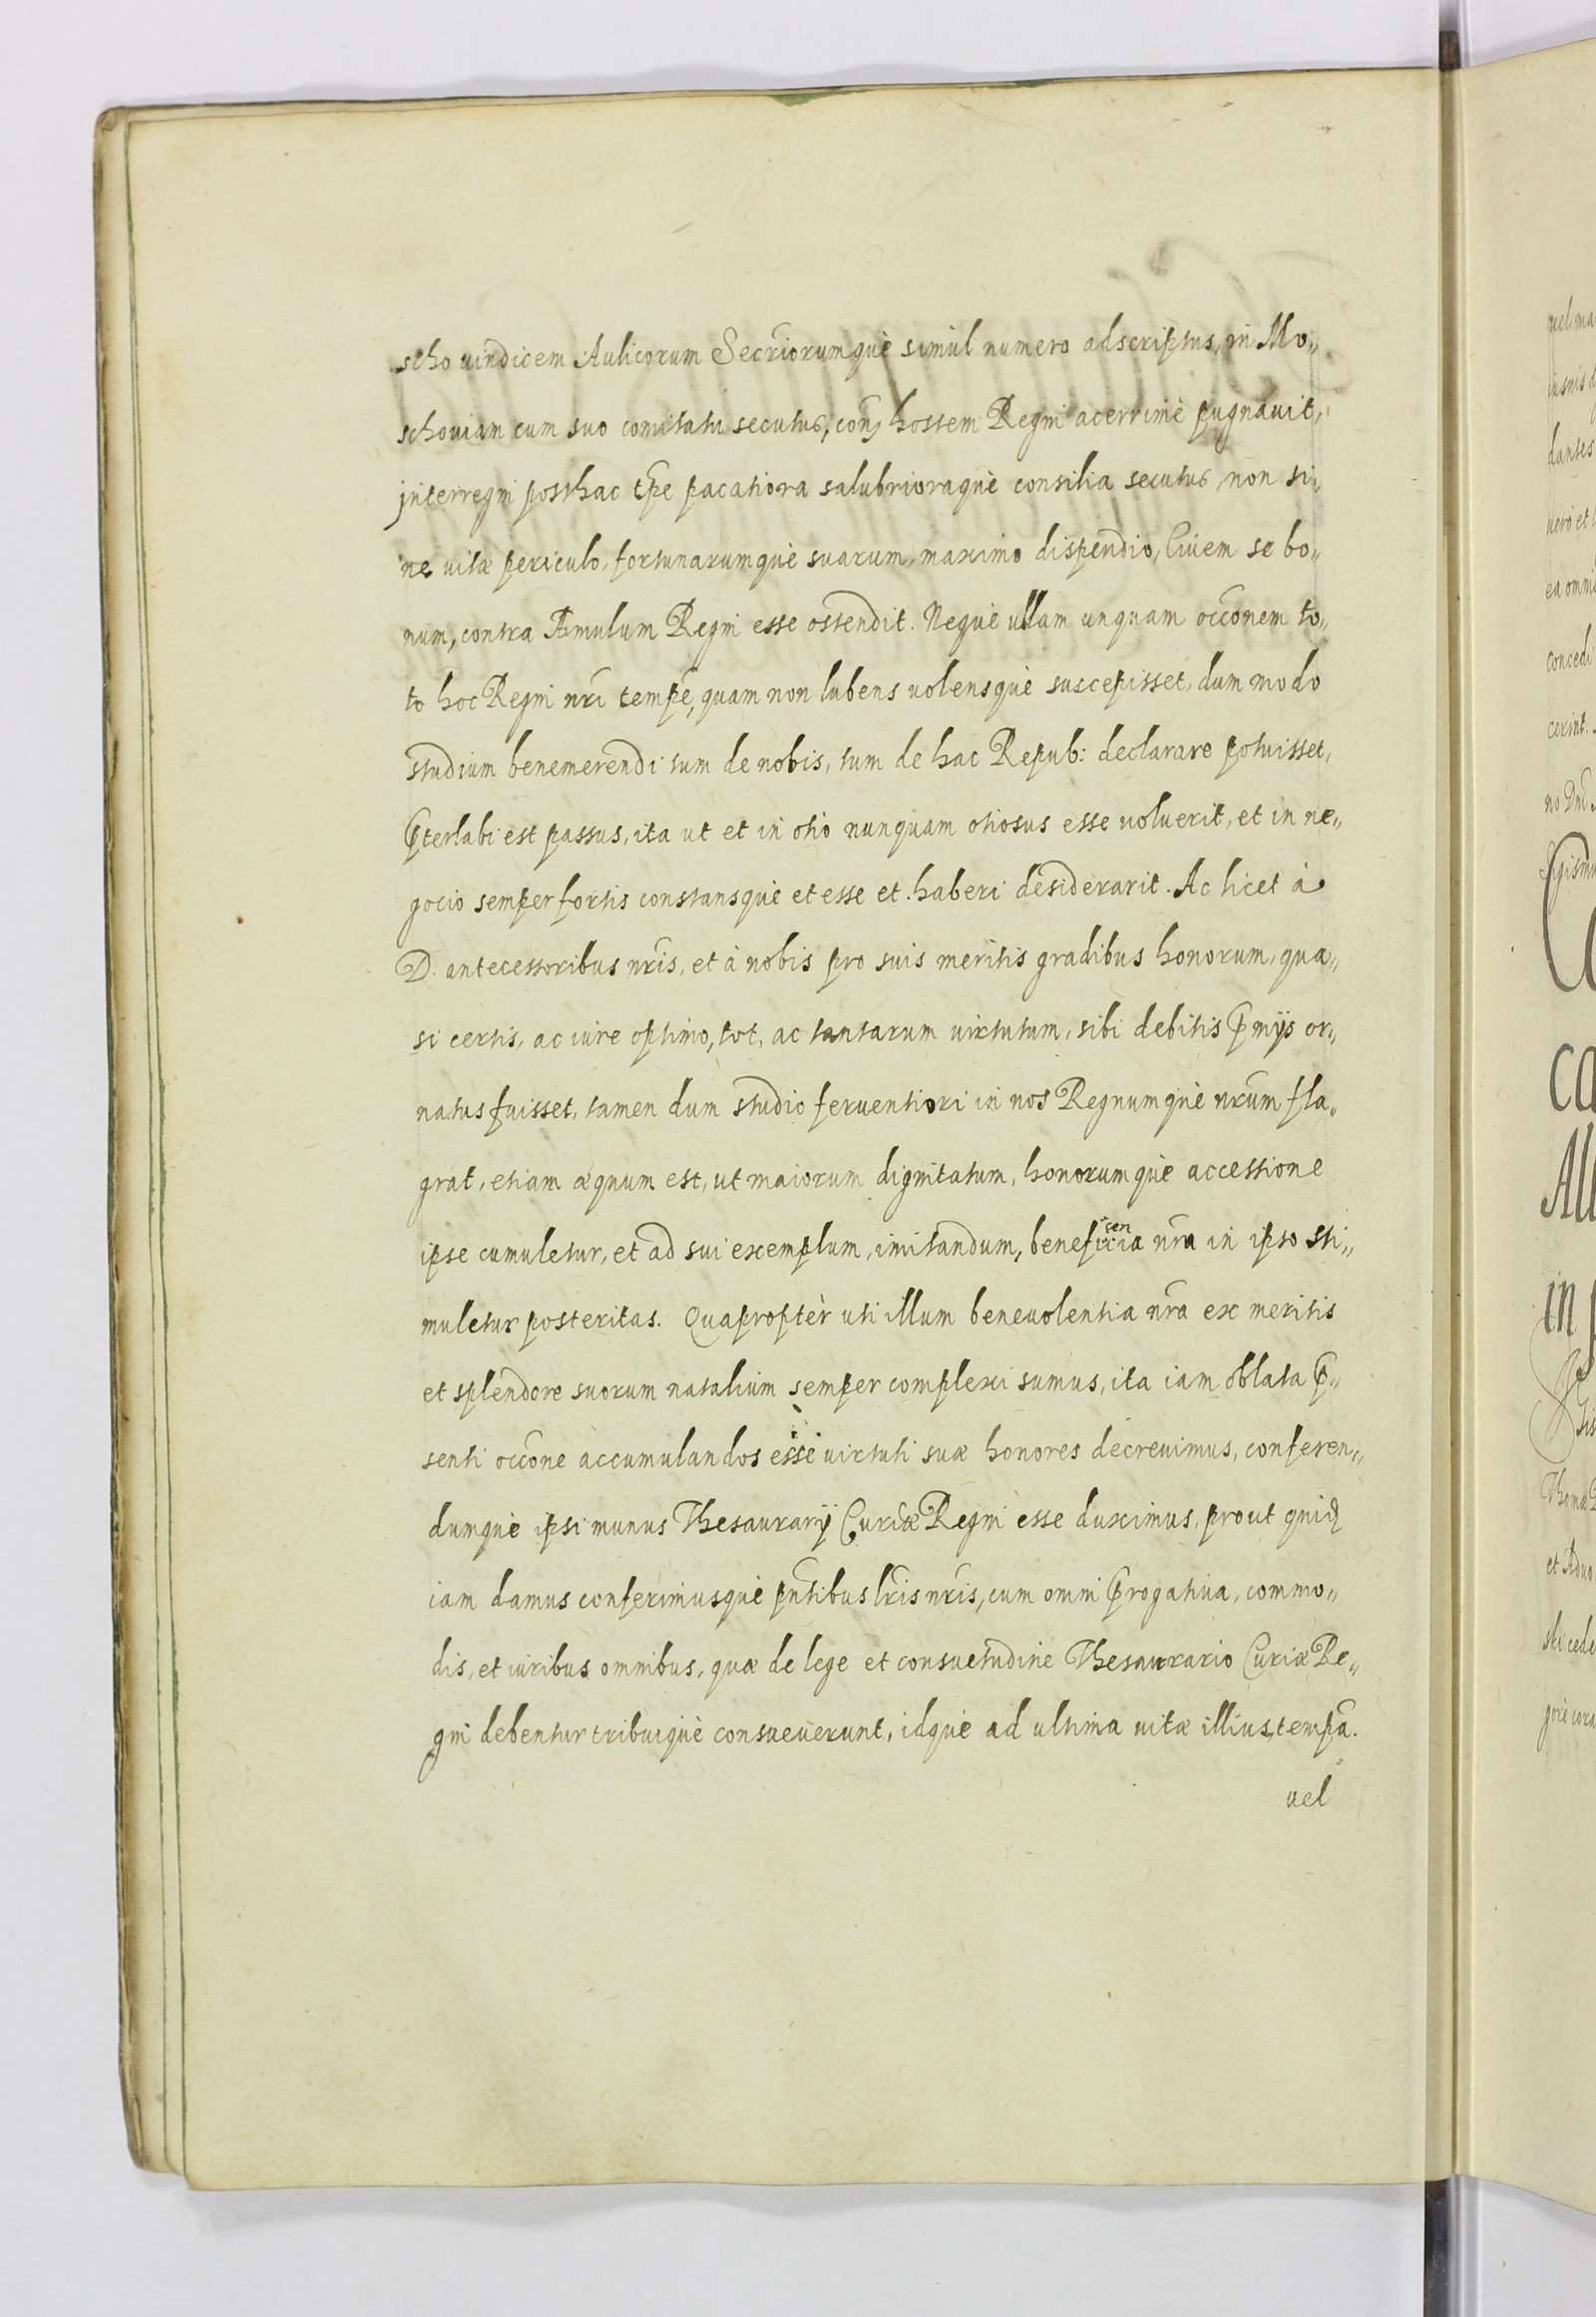 scho uindicem Aulicorum Secriorumquè simul numero adscriptus, in Mo„
schouiam cum suo comitatu secutus, con hostem Regni acerrimè pugnauit,
interregni posthac tpe pacatiora salubrioraquè consilia secutus non si„
ne uitæ periculo, fortunarumquè suarum, maximo dispendio, Ciuem se bo„
num, contra Æmulum Regni esse ostendit. Nequè ullam unquam occonem to„
to hoc Regni nri tempe, quam non lubens uolensquè suscepisset, dum modo
studium benemerendi tum de nobis, tum de hac Repub: declarare potuisset,
pterlabi est passus, ita ut et in otio nunquam otiosus esse uoluerit, et in ne„
gocio semper fortis constansquè et esse et haberi desiderarit. Ac licet à
D. antecessoribus nris, et à nobis pro suis meritis gradibus honorum, qua„
si certis, ac iure optimo, tot, ac tantarum uirtutum, sibi debitis pmijs or„
natus fuisset, tamen dum studio feruentiori in nos Regnumquè nrum fla„
grat, etiam æquum est, ut maiorum dignitatum, honorumquè accessione
ipse cumuletur, et ad sui exemplum, imitandum, beneficia nra in ipso sti„
muletur posteritas. Quaproptèr uti illum beneuolentia nra ex meritis
et splendore suorum natalium semper complexi sumus, ita iam oblata p„
senti occone accumulandos esse uirtuti suæ honores decreuimus, conferen„
dumquè ipsi munus Thesaurarij Curiæ Regni esse duximus, prout quid
iam damus conferimusquè pntibus lris nris, cum omni progatiua, commo„
dis, et iuribus omnibus, quæ de lege et consuetudine Thesaurario Curiæ Re„
gni debentur tribuiquè consueuerunt, idquè ad ultima uitæ illius, tempa.
uel